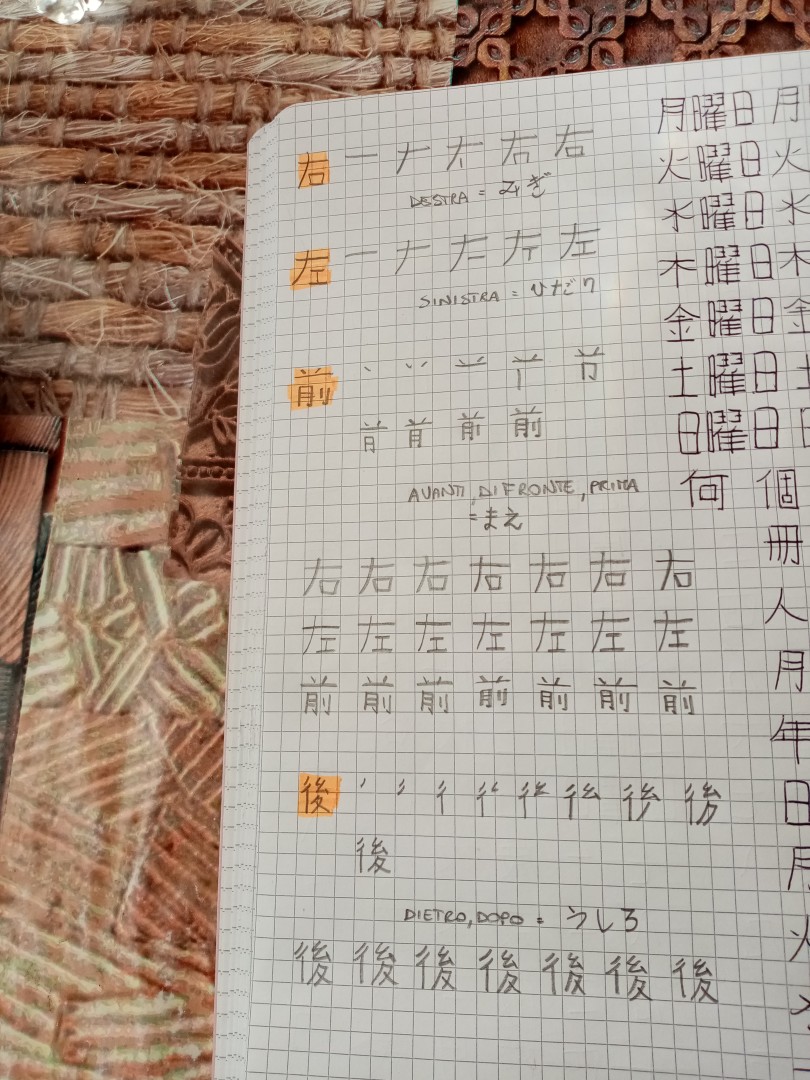 右 一 ナ 右 右
DESTRA = みぎ
左 一 ナ 左
SINISTRA = ひだり
前 前
AVANTI, DI FRONTE, PRIMA
= まえ
右 右 右 右 右 右 右
左 左 左 左 左 左 左
前 前 前 前 前 前 前
後
後
DIETRO, DOPO = うしろ
後 後 後 後 後 後 後
月曜日 月
火曜日 火
水曜日 水
木曜日 木
金曜日 金
土曜日 土
日曜日 日
何 個
冊
人
月
年
日
月
火